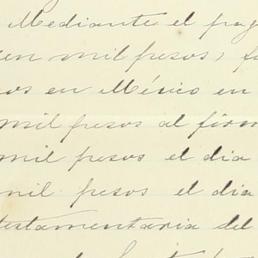 Mediante el pag
en mil pesos, f
os en México en
mil pesos al firm
mil pesos el dia
mil pesos el dia
testamentaria del